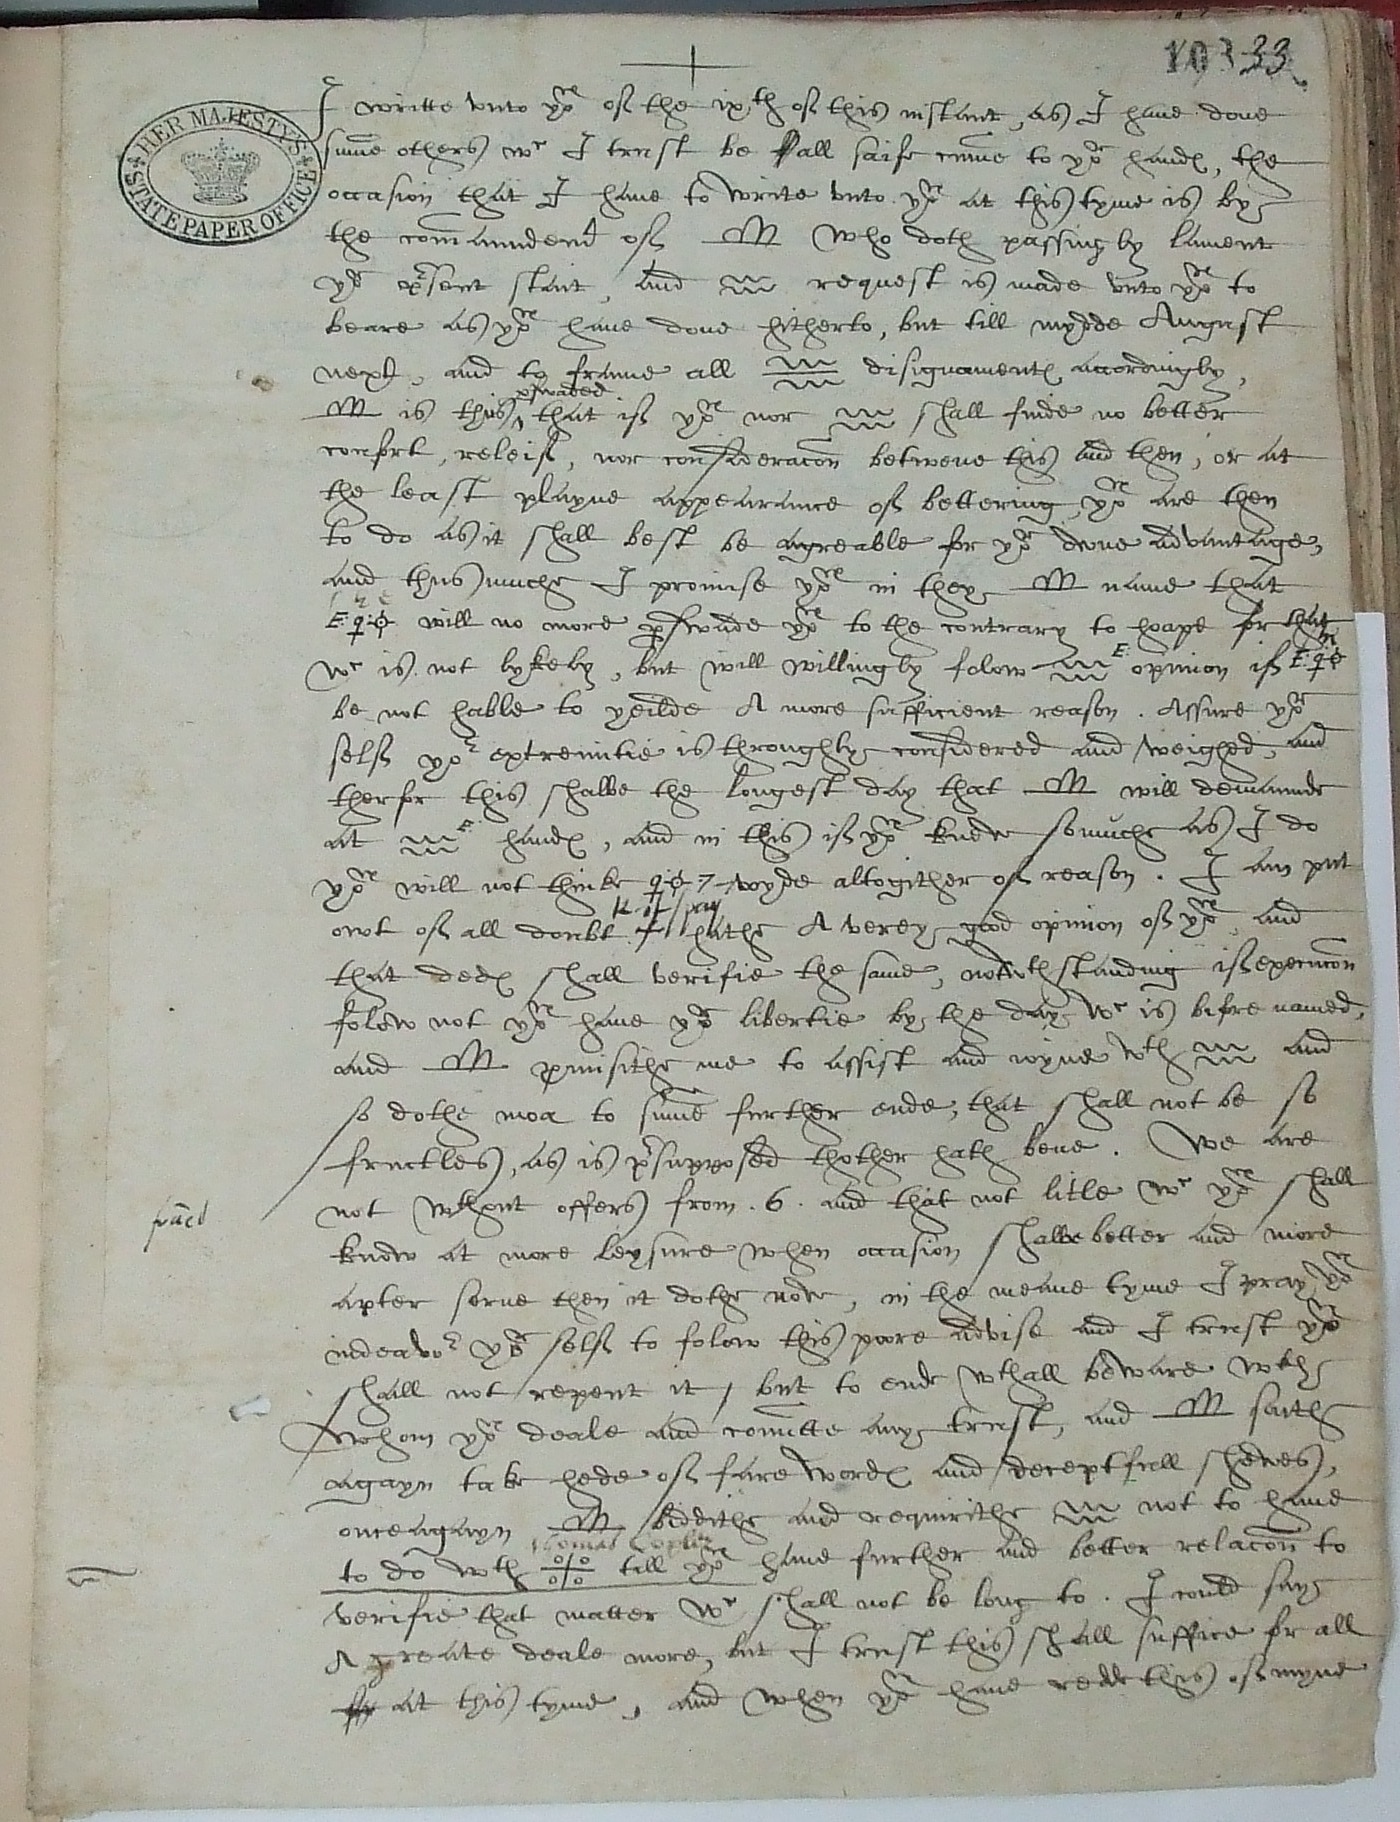 103 33
HER MAJESTY'S STATE PAPER OFFICE
I writte vnto yow of the ixth of this instant, as I haue done
sume others wch I trust be all saife cume to yor handes, the
occasion that I haue to write vnto yow at this tyme is by
the commaundend of M who doth passingly lament
yor present stait, and request is made vnto yow to
beare as yow haue done hitherto, but till mydde August
next, and to frame all disignamentes accordingly,
M is thus perswaded that if yow nor shall finde no better
confort, releif, nor consideracon betwene this and then, or at
the least playne appearance of bettering, yow are then
to do as it shall best be agreable for yor owne advantage,
and thus muche I promise yow in they M name that
will no more perswade yow to the contrary to hoape for that
wch is not lykely, but will willingly folow opinion if
be not hable to yeilde A more sufficient reason. Assure yor
self yor extremitie is throughly considered and weighed, and
therfor this shalbe the longest day that M will demaunde
at handes, and in this if yow knew so muche as I do
yow will not thinke wyde altogither of reason. I am put
owt of all doubt hathe A verey good opinion of yow, and
that dedes shall verifie the same, notwthstanding if execucon
folow not yow haue yor libertie by the day wch is bifore named,
and M promisithe me to assist and ioyne wth and
so dothe moa to sume further ende, that shall not be so
frutles, as is presupposed thother hath bene. We are
not wthout offers from .6. and that not litle wch yow shall
know at more leysure when occasion shalbe better and more
apter serue then it dothe now, in the meane tyme I pray yow
indeavor yor self to folow this poore advise and I trust yow
shall not repent it, but to ende wthall beware wth
whom yow deale and comitte any trust, and M saith
agayn take hede of fare wordes and deceptfull shewes,
once agayn M biddithe and requirithe not to haue
to do wth till yow haue further and better relacon to
verifie that matter wch shall not be long to. I could say
A greate deale more, but I trust this shall suffice for all
at this tyme, and when yow haue redde this of myne